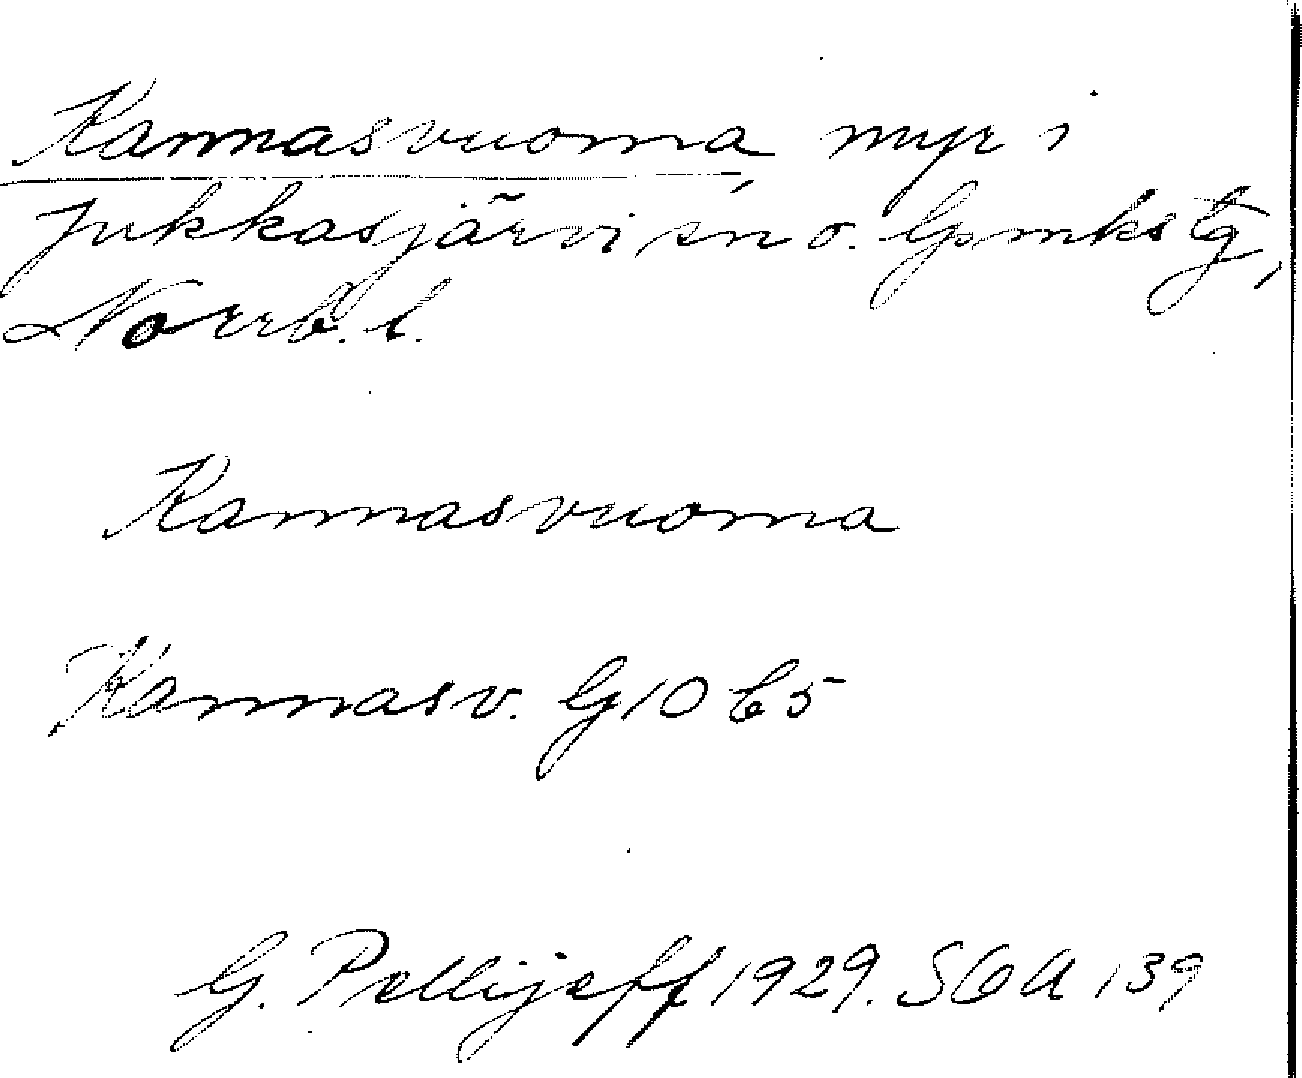 Kannasvuoma, myr i
Jukkasjärvi sn o. Gpmkstg,
Norrb. l.
Kannasvuoma
Kannasv. G10 b5
G. Pellijeff 1929. SOA 139